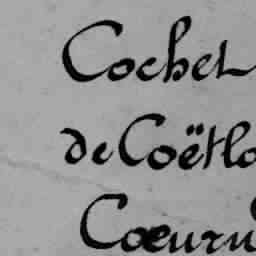 Cochet
de Coëtlo
Cœuru